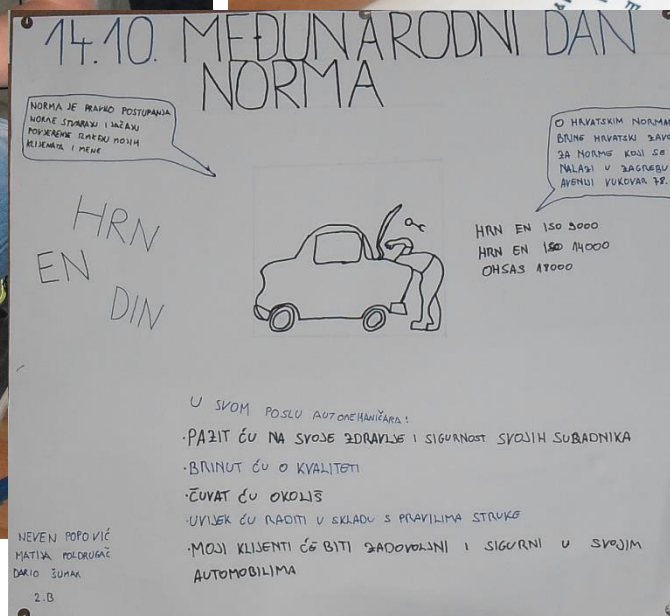 14.10. MEĐUNARODNI DAN
NORMA
NORMA JE PRAVILO POSTUPANJA
NORME STVARAJU I JAČAJU
POVJERENJE IZMEĐU MOJIH
KLIJENATA I MENE
O HRVATSKIM NORMAMA
BRINE HRVATSKI ZAVOD
ZA NORME KOJI SE
NALAZI U ZAGREBU
AVENIJI VUKOVAR 78.
HRN
EN
DIN
HRN EN ISO 9000
HRN EN ISO 14000
OHSAS 18000
U SVOM POSLU AUTOMEHANIČARA:
·PAZIT ĆU NA SVOJE ZDRAVLJE I SIGURNOST SVOJIH SURADNIKA
·BRINUT ĆU O KVALITETI
·ČUVAT ĆU OKOLIŠ
·UVIJEK ĆU RADITI U SKLADU S PRAVILIMA STRUKE
·MOJI KLIJENTI ĆE BITI ZADOVOLJNI I SIGURNI U SVOJIM
AUTOMOBILIMA
NEVEN POPOVIĆ
MATIJA POLDRUGAČ
DARIO ŠUMAR
2.B